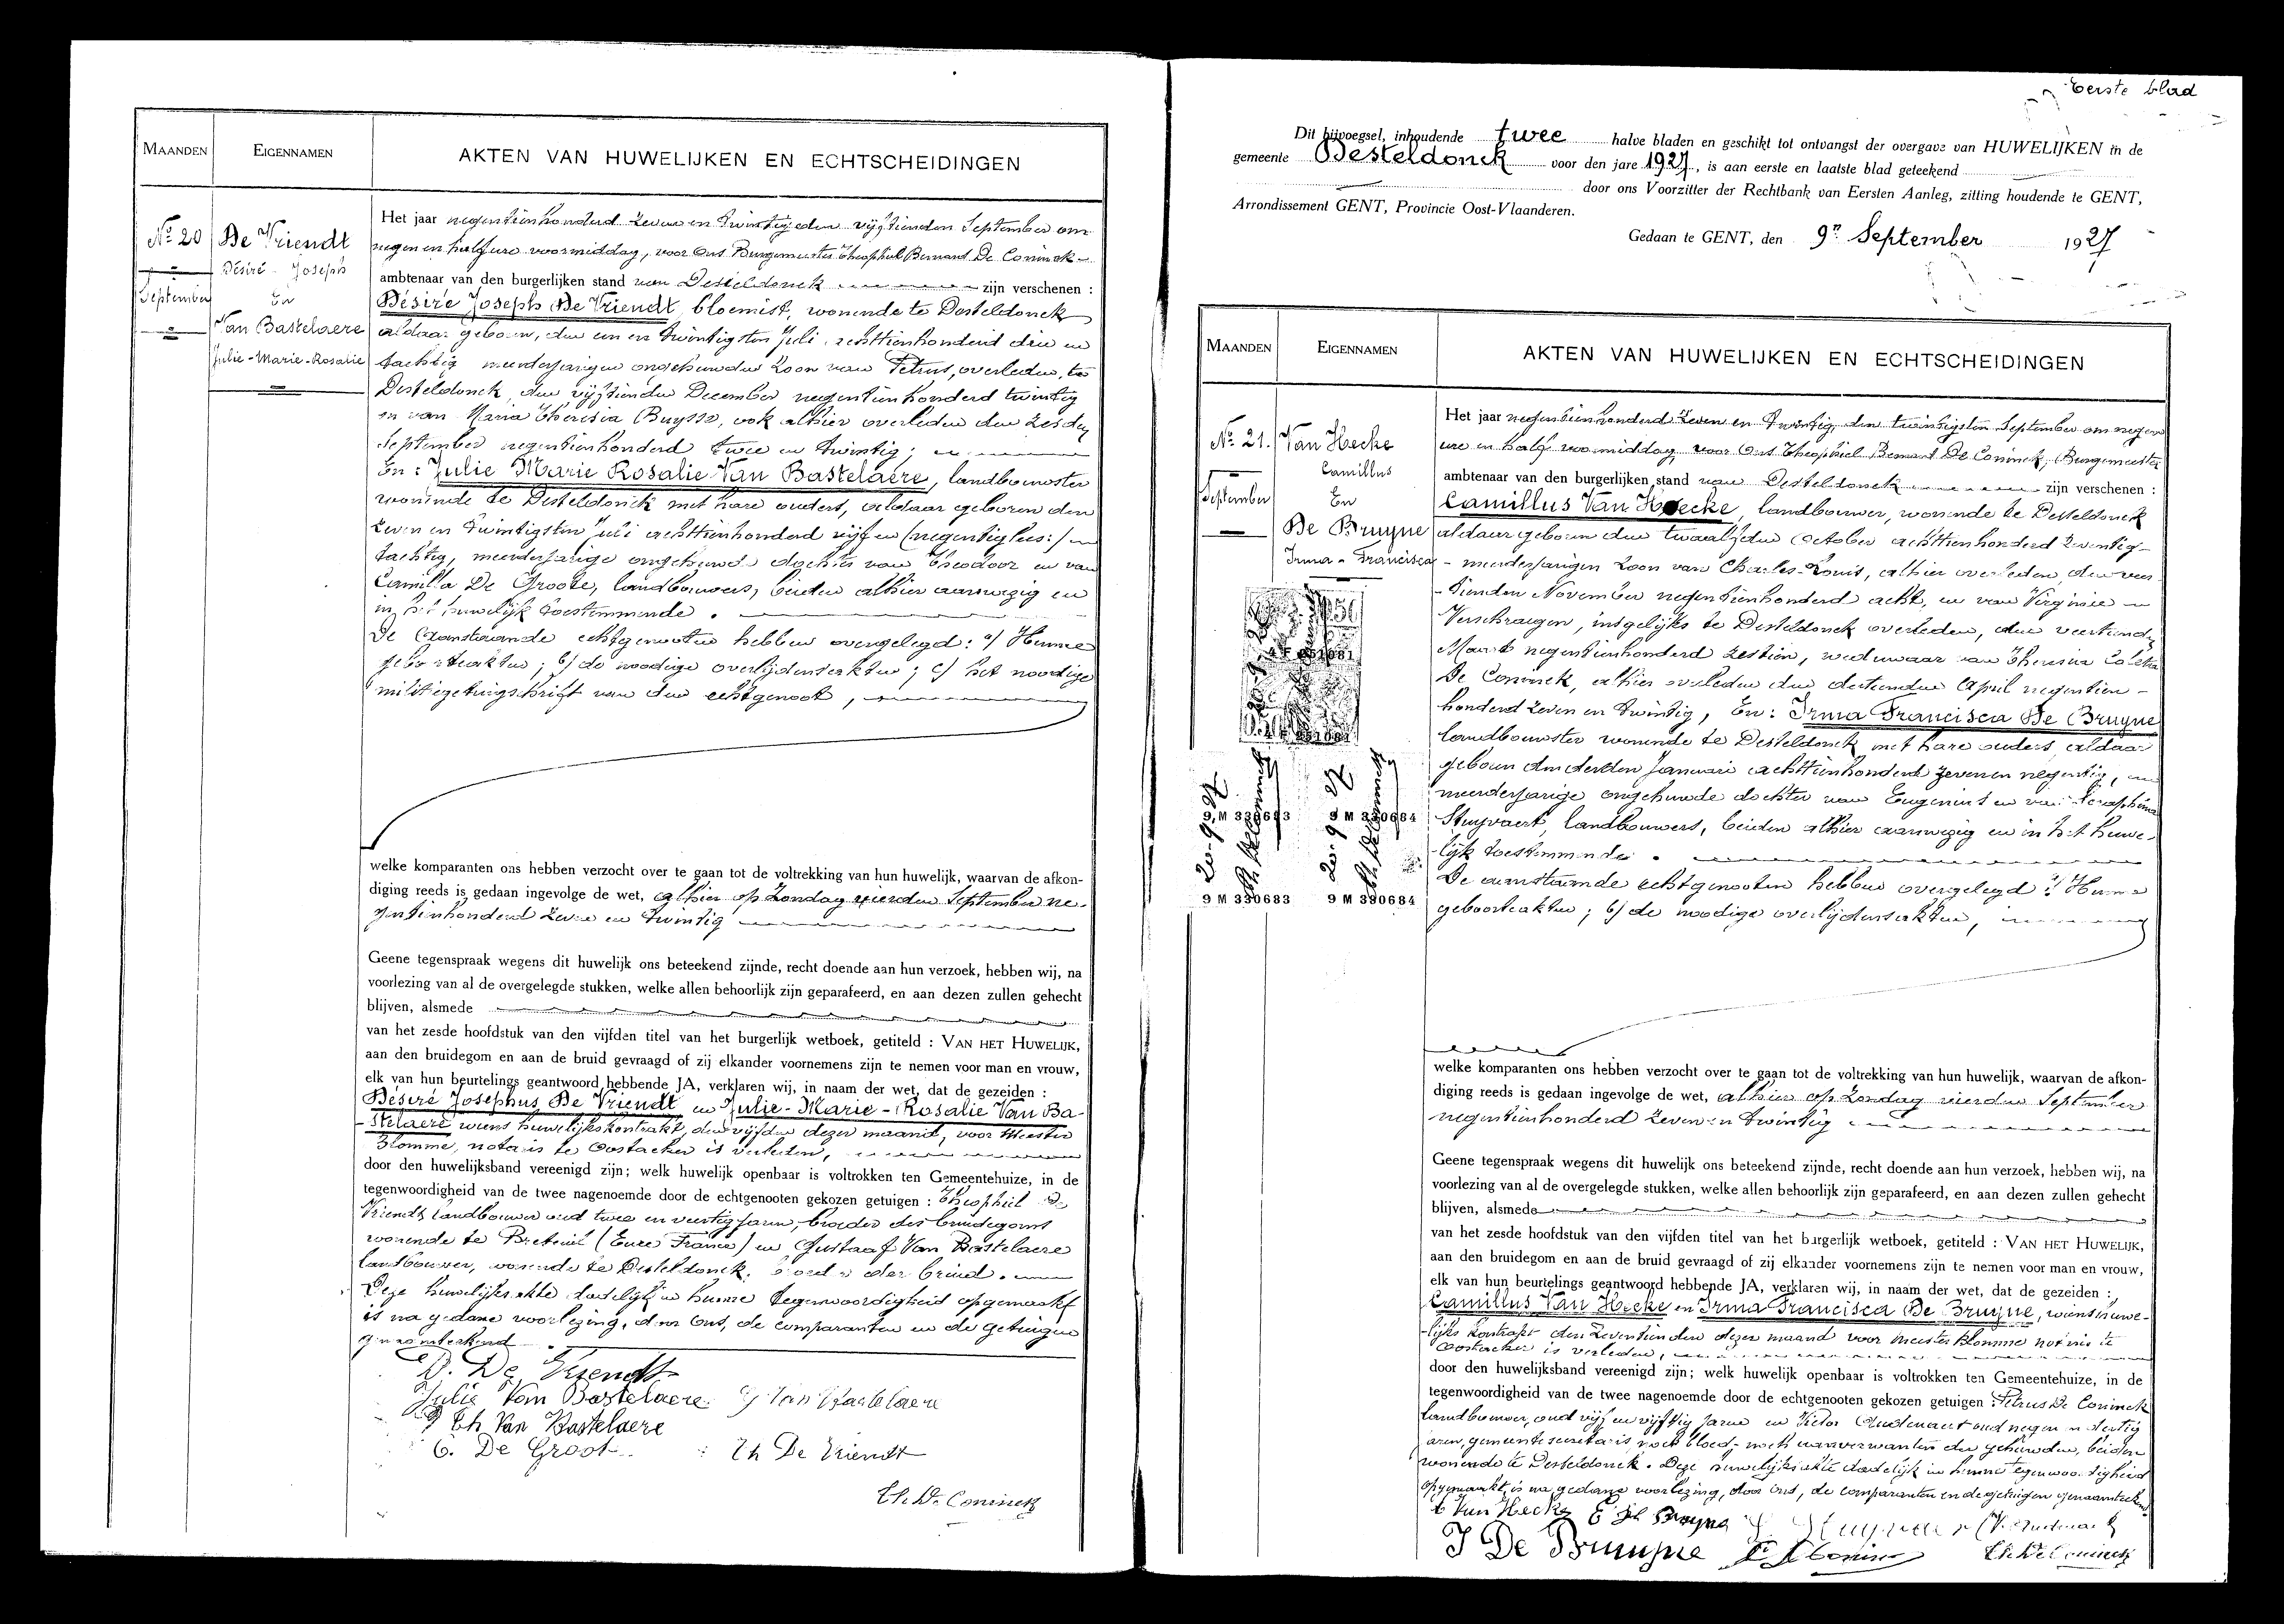 MAANDEN
EIGENNAMEN
AKTEN VAN HUWELIJKEN EN ECHTSCHEIDINGEN
No 20
September
De Vriendt
Désiré - Joseph
En
Van Bastelaere
Julie-Marie-Rosalie
Het jaar negentienhonderd zeven en twintig den vijftienden September om
negen en half ure voormiddag, voor Ons Burgemeester Theophiel Bernard De Coninck
ambtenaar van den burgerlijken stand van Desteldonck zijn verschenen :
Désiré Joseph De Vriendt, bloemist, wonende te Desteldonck
aldaar geboren, den een en twintigsten Juli achttienhonderd drie en
tachtig meerderjarigen ongehuwden zoon van Petrus, overleden te
Desteldonck, den vijftienden December negentienhonderd twintig
en van Maria Theresia Buysse, ook alhier overleden den zesden
September negentienhonderd twee en twintig;
En : Julie Marie Rosalie Van Bastelaere, landbouwster
wonende te Desteldonck met hare ouders, aldaar geboren den
zeven en twintigsten Juli achttienhonderd vijf en (negentig lees:)
tachtig, meerderjarige ongehuwde dochter van Theodoor en van
Camilla De Groote, landbouwers, beiden alhier aanwezig en
in het huwelijk toestemmende.
De aanstaande echtgenooten hebben overgelegd: a/ Hunne
geboorteakten; b/ de noodige overlijdensakten; c/ het noodige
militiegetuigschrift van den echtgenoot,
welke komparanten ons hebben verzocht over te gaan tot de voltrekking van hun huwelijk, waarvan de afkon-
diging reeds is gedaan ingevolge de wet, alhier op Zondag vierden September ne-
gentienhonderd zeven en twintig
Geene tegenspraak wegens dit huwelijk ons beteekend zijnde, recht doende aan hun verzoek, hebben wij, na
voorlezing van al de overgelegde stukken, welke allen behoorlijk zijn geparafeerd, en aan dezen zullen gehecht
blijven, alsmede
van het zesde hoofdstuk van den vijfden titel van het burgerlijk wetboek, getiteld : VAN HET HUWELIJK,
aan den bruidegom en aan de bruid gevraagd of zij elkander voornemens zijn te nemen voor man en vrouw,
elk van hun beurtelings geantwoord hebbende JA, verklaren wij, in naam der wet, dat de gezeiden :
Désiré Josephus De Vriendt en Julie-Marie-Rosalie Van Ba-
-stelaere wiens huwelijkskontrakt, den vijfden dezer maand, voor Meester
Blomme, notaris te Oostacker is verleden,
door den huwelijksband vereenigd zijn; welk huwelijk openbaar is voltrokken ten Gemeentehuize, in de
tegenwoordigheid van de twee nagenoemde door de echtgenooten gekozen getuigen : Theophiel De
Vriendt landbouwer oud twee en veertig jaren, broeder des bruidegoms
wonende te Breteuil (Eure France) en Gustaaf Van Bastelaere
landbouwer, wonende te Desteldonck, broeder der bruid.
Deze huwelijksakte dadelijk in hunne tegenwoordigheid opgemaakt
is na gedane voorlezing, door Ons, de comparanten en de getuigen
genaamteekend.
D. De Vriendt
Julie Van Bastelaere G Van Bastelaere
Th Van Bastelaere
C. De Groote Th De Vriendt
Th. De Coninck
Eerste blad
Dit bijvoegsel, inhoudende twee halve bladen en geschikt tot ontvangst der overgave van HUWELIJKEN in de
gemeente Desteldonck voor den jare 1927, is aan eerste en laatste blad geteekend
door ons Voorzitter der Rechtbank van Eersten Aanleg, zitting houdende te GENT,
Arrondissement GENT, Provincie Oost-Vlaanderen.
Gedaan te GENT, den 9n September 1927
MAANDEN
EIGENNAMEN
AKTEN VAN HUWELIJKEN EN ECHTSCHEIDINGEN
No 21.
September
Van Hecke
Camillus
En
De Bruyne
Irma - Francisca
9 M 330683 9 M 330684
9 M 330683 9 M 330684
Het jaar negentienhonderd zeven en twintig, den twintigsten September om negen
ure en half voormiddag voor Ons Theophiel Bernard De Coninck, Burgemeester
ambtenaar van den burgerlijken stand van Desteldonck zijn verschenen :
Camillus Van Hecke, landbouwer, wonende te Desteldonck
aldaar geboren den twaalfden October achttienhonderd zeventig
- meerderjarigen zoon van Charles-Louis, alhier overleden, den veer-
-tienden November negentienhonderd acht, en van Virginie
Verschraegen, insgelijks te Desteldonck overleden, den veertienden
Maart negentienhonderd zestien, weduwaar van Theresia Coleta
De Coninck, alhier overleden den dertienden April negentien-
honderd zeven en twintig, En: Irma Francisca De Bruyne
landbouwster wonende te Desteldonck met hare ouders aldaar
geboren den derden Januari achttienhonderd zeven en negentig,
meerderjarige ongehuwde dochter van Eugenius en van Seraphina
Stuyvaert, landbouwers, beiden alhier aanwezig en in het huwe-
-lijk toestemmende.
De aanstaande echtgenooten hebben overgelegd a/ Hunne
geboorteakten; b/ de noodige overlijdensakten,
welke komparanten ons hebben verzocht over te gaan tot de voltrekking van hun huwelijk, waarvan de afkon-
diging reeds is gedaan ingevolge de wet, alhier op Zondag vierden September
negentienhonderd zeven en twintig
Geene tegenspraak wegens dit huwelijk ons beteekend zijnde, recht doende aan hun verzoek, hebben wij, na
voorlezing van al de overgelegde stukken, welke allen behoorlijk zijn geparafeerd, en aan dezen zullen gehecht
blijven, alsmede
van het zesde hoofdstuk van den vijfden titel van het burgerlijk wetboek, getiteld : VAN HET HUWELIJK,
aan den bruidegom en aan de bruid gevraagd of zij elkander voornemens zijn te nemen voor man en vrouw,
elk van hun beurtelings geantwoord hebbende JA, verklaren wij, in naam der wet, dat de gezeiden :
Camillus Van Hecke en Irma Francisca De Bruyne, wiens huwe-
-lijks kontrakt den zeventienden dezer maand voor meester Blomme notaris te
Oostacker is verleden,
door den huwelijksband vereenigd zijn; welk huwelijk openbaar is voltrokken ten Gemeentehuize, in de
tegenwoordigheid van de twee nagenoemde door de echtgenooten gekozen getuigen : Petrus De Coninck
landbouwer, oud vijf en vijftig jaren en Victor Audenaert oud negen en dertig
jaren, gemeentesecretaris, noch bloed- noch aanverwanten der gehuwden, beiden
wonende te Desteldonck. Deze huwelijksakte dadelijk in hunne tegenwoordigheid
opgemaakt, is na gedane voorlezing, door Ons, de comparanten en de getuigen genaamteekend
C Van Hecke E De Bruyne
I De Bruyne Th. De Coninck